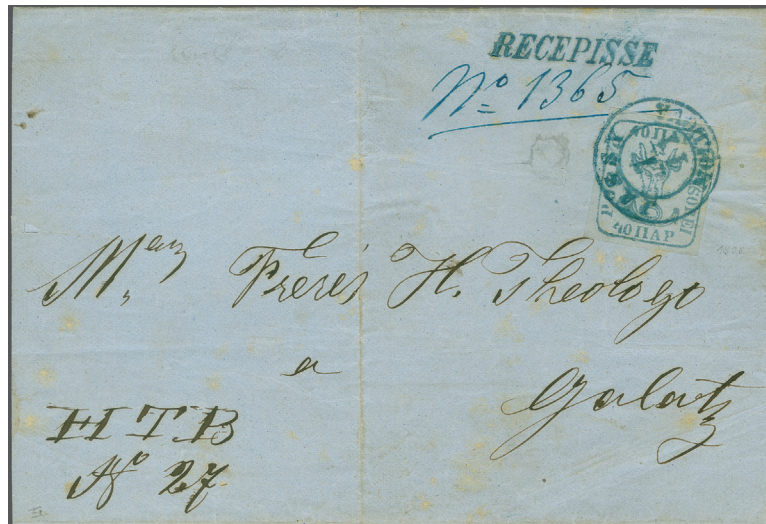 RECEPISSE
No 1365
40 ПАР
Frerés H. Theologo
a
Galatz
HTB
No 27